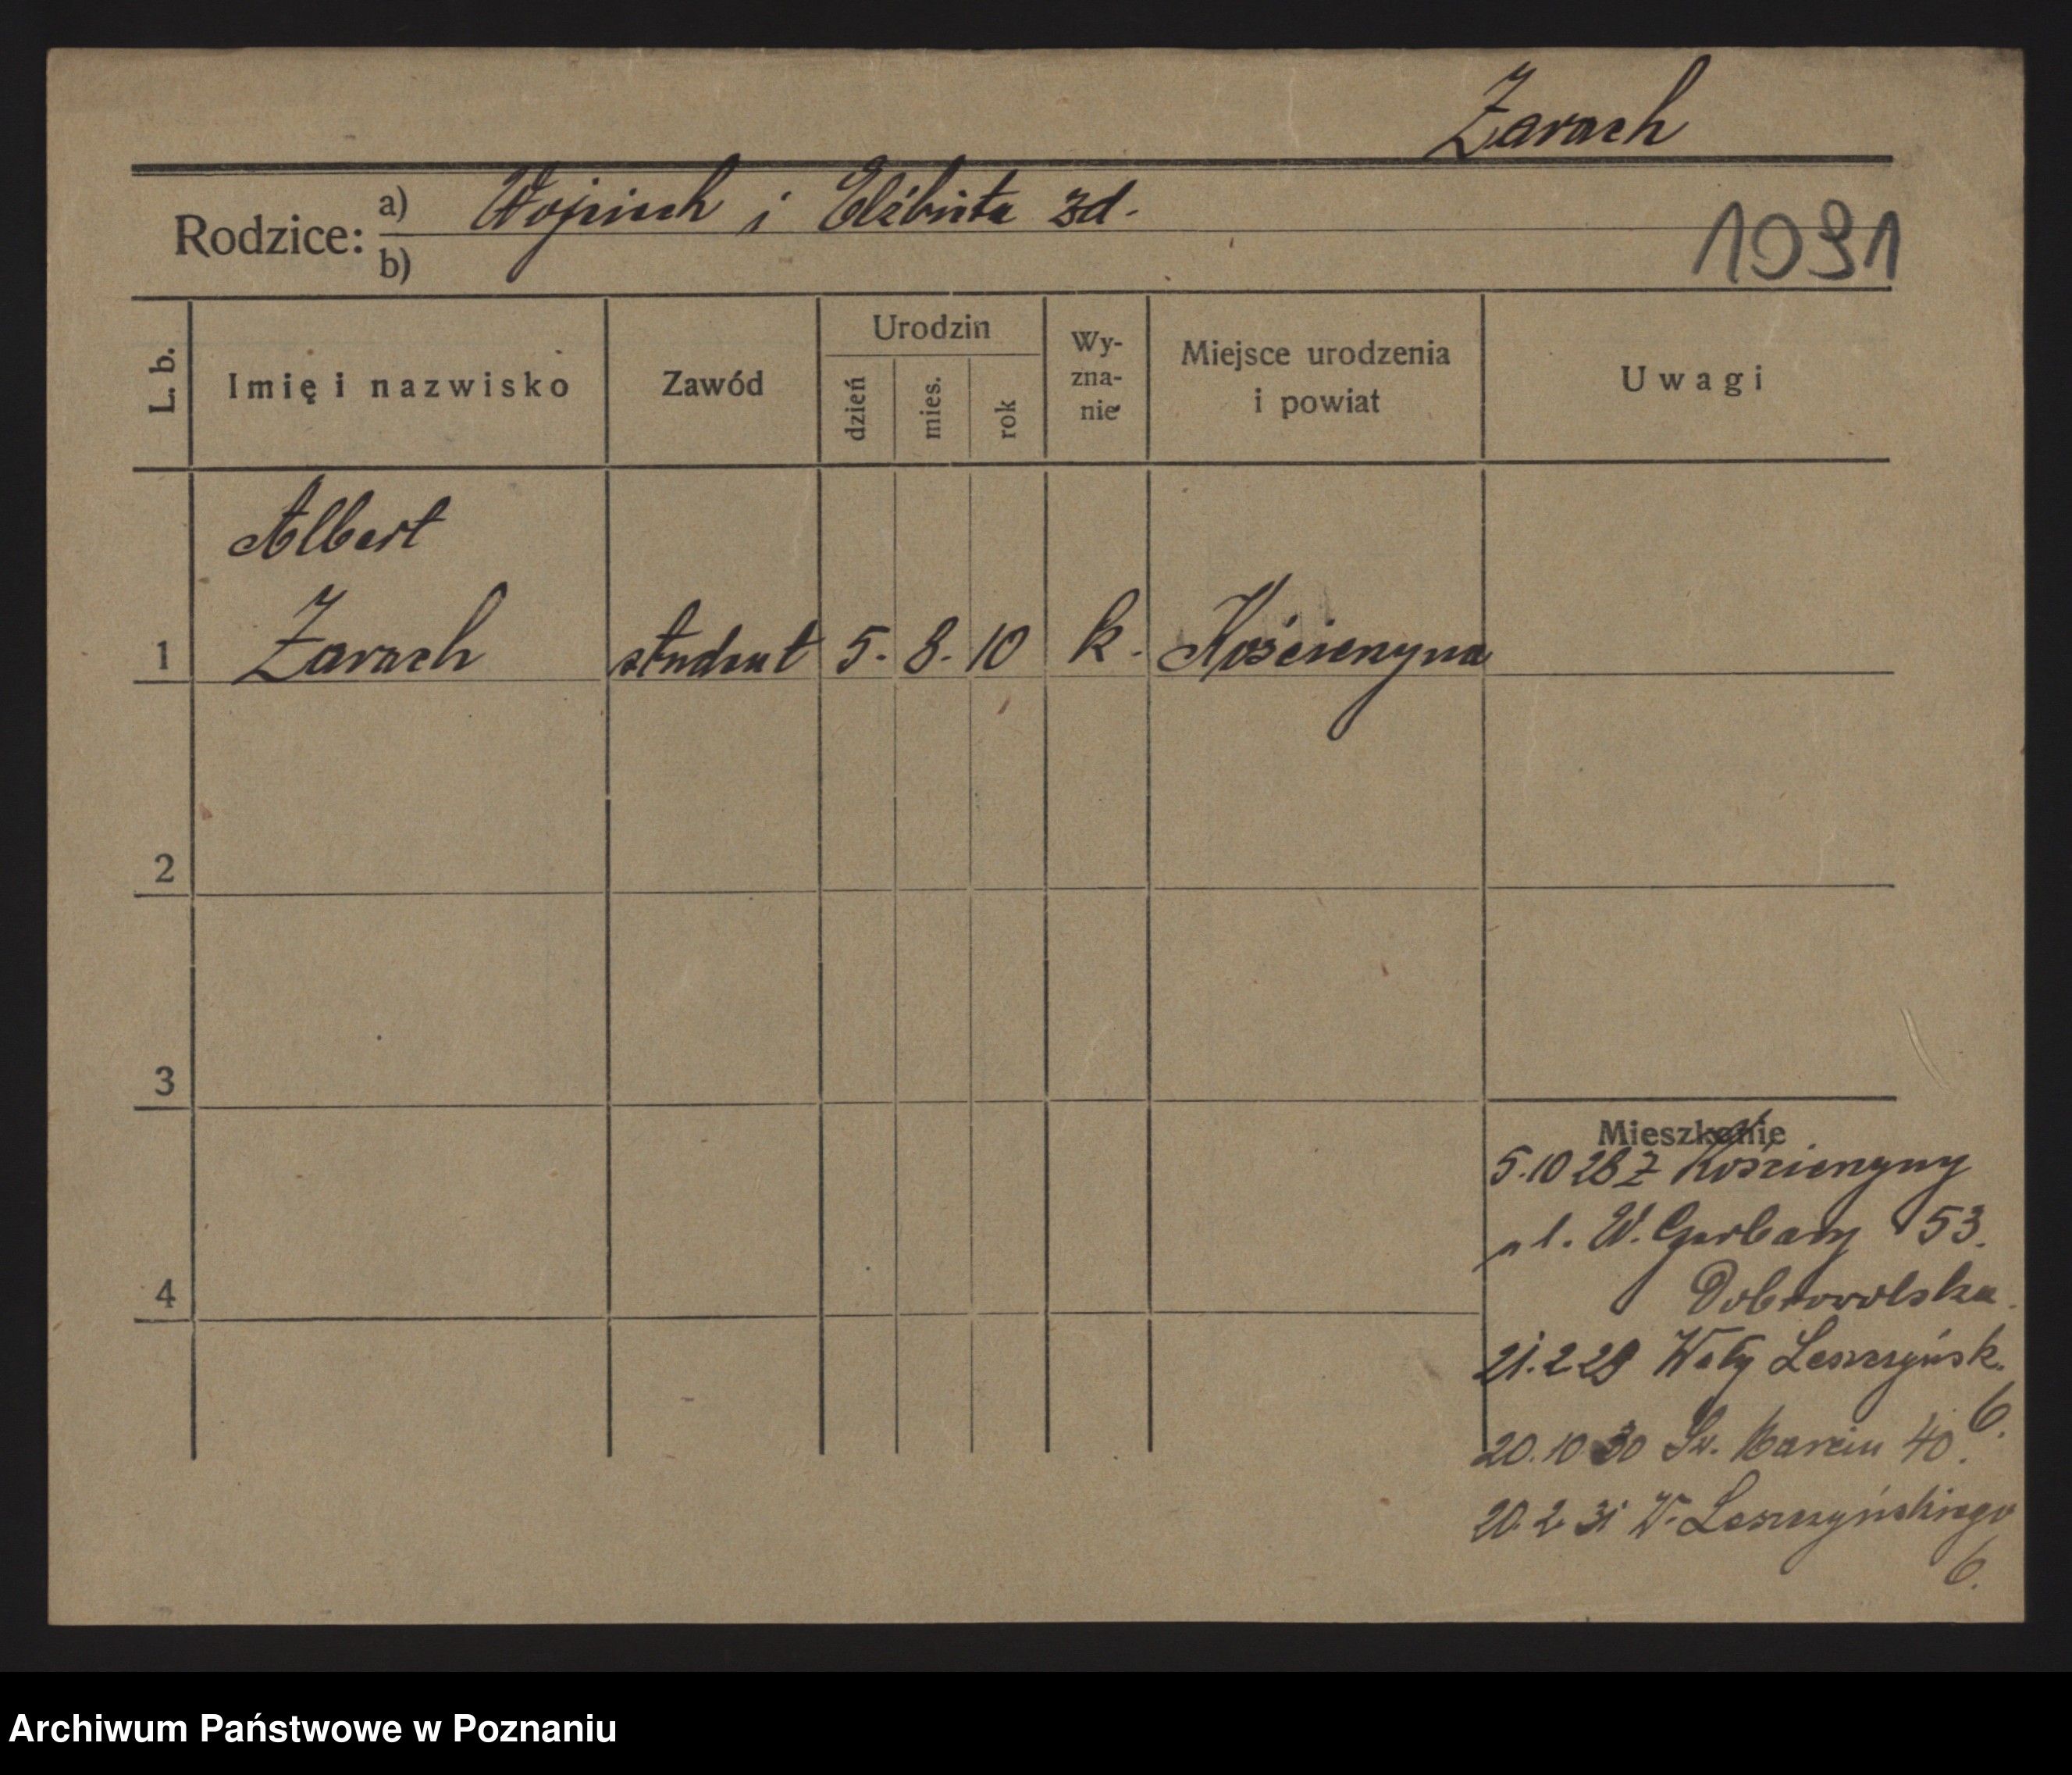 Zarach
Rodzice: a) Wojciech i Elżbieta zd.
b)
1931
L. b. Imię i nazwisko Zawód Urodzin dzień mies. rok Wyznanie Miejsce urodzenia i powiat Uwagi
Albert
1 Zarach student 5. 8. 10 k. Kościerzyna
2
3
4
Mieszkanie
5.10 28 Z Kościerzyny
ul. W. Garbary 53.
Dobrowolska.
21.2.29 Wały Leszczyńsk.
6.
20.10 30 Św. Marcin 40.
20.2 31 W. Leszczyńskiego
6.
Archiwum Państwowe w Poznaniu